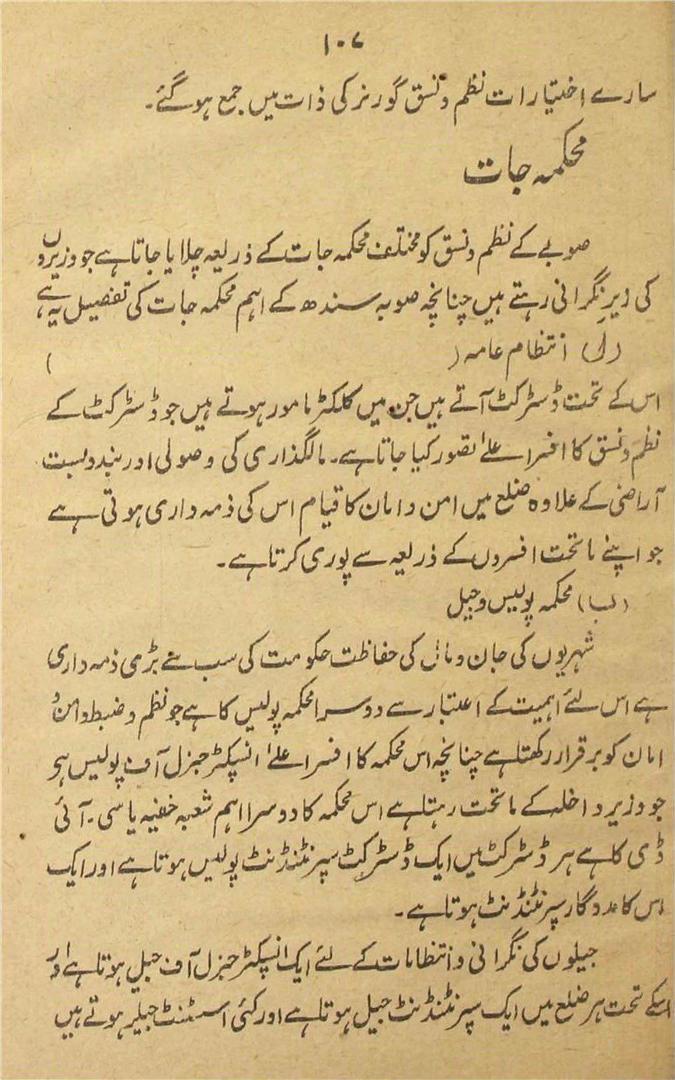 ۱۰۷
سارے اختیارات نظم و نسق گورنر کی ذات میں جمع ہوگئے۔
محکمہ جات
صوبے کے نظم و نسق کو مختلف محکمہ جات کے ذریعہ چلایا جاتا ہے جو وزیروں
کی زیرِ نگرانی رہتے ہیں چنانچہ صوبہ سندھ کے اہم محکمہ جات کی تفصیل یہ ہے
(ل) انتظام عامہ ( )
اس کے تحت ڈسٹرکٹ آتے ہیں جن میں کلکٹر مامور ہوتے ہیں جو ڈسٹرکٹ کے
نظم و نسق کا افسر اعلےٰ تصور کیا جاتا ہے۔ مالگذاری کی وصولی اور بندوبست
آراضی کے علاوہ ضلع میں امن و امان کا قیام اس کی ذمہ داری ہوتی ہے
جو اپنے ماتحت افسروں کے ذریعہ سے پوری کرتا ہے۔
(ب) محکمہ پولیس و جیل
شہریوں کی جان و مال کی حفاظت حکومت کی سب سے بڑی ذمہ داری
ہے اس لئے اہمیت کے اعتبار سے دوسرا محکمہ پولیس کا ہے جو نظم و ضبط و امن و
امان کو برقرار رکھتا ہے چنانچہ اس محکمہ کا افسر اعلےٰ انسپکٹر جنرل آف پولیس ہے
جو وزیر داخلہ کے ماتحت رہتا ہے اس محکمہ کا دوسرا اہم شعبہ خفیہ یا سی۔ آئی
ڈی کا ہے ہر ڈسٹرکٹ میں ایک ڈسٹرکٹ سپرنٹنڈنٹ پولیس ہوتا ہے اور ایک
اس کا مددگار سپرنٹنڈنٹ ہوتا ہے۔
جیلوں کی نگرانی و انتظامات کے لئے ایک انسپکٹر جنرل آف جیل ہوتا ہے اور
اسکے تحت ہر ضلع میں ایک سپرنٹنڈنٹ جیل ہوتا ہے اور کئی اسسٹنٹ جیلر ہوتے ہیں